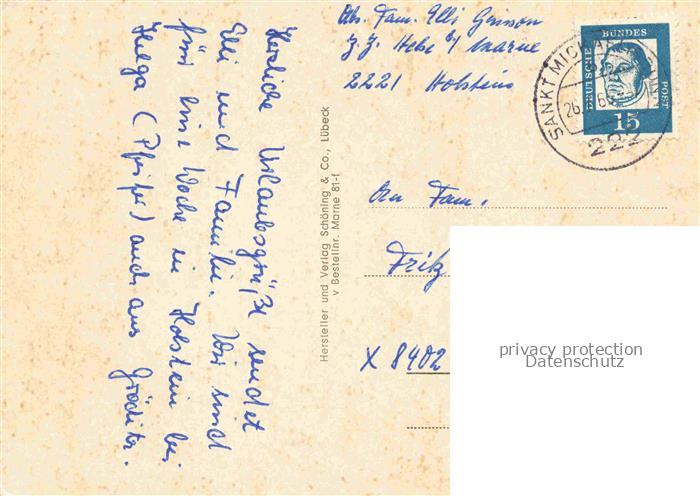 Herzliche Urlaubsgrüße sendet
Elli und Familie. Wir sind
für eine Woche in Holstein bei
Helga (Pfeifer) auch aus Gröditz.
Hersteller und Verlag Schöning & Co., Lübeck
v Bestellnr. Marne 81-f
Abs. Fam. Elli
z. Z. b/ Marne
2221 Holstein
SANKT MICHA
26.
222
DEUTSCHE
BUNDES
POST
15
An Fam.
Fritz
X 8402
privacy protection
Datenschutz